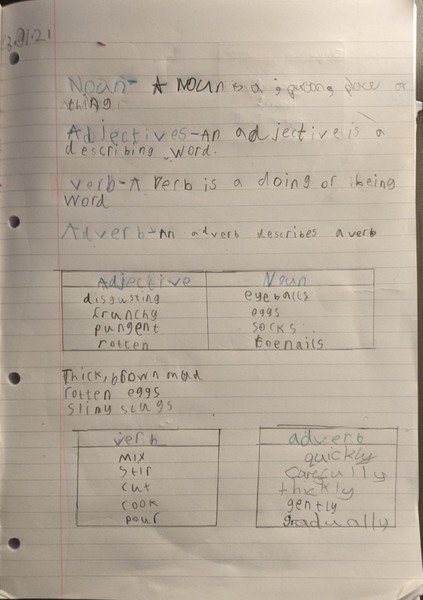 13.01.21
Noun- A NOUN is a person, place or
thing
Adjectives-An adjective is a
describing word.
verb-A Verb is a doing or being
word
Adverb-An adverb describes a verb
Adjective Noun
disgusting eyeballs
crunchy eggs
pungent socks
rotten toenails
Thick, brown mud
rotten eggs
Slimy slugs
verb adverb
mix quickly
stir carefully
cut thickly
cook gently
pour gradually